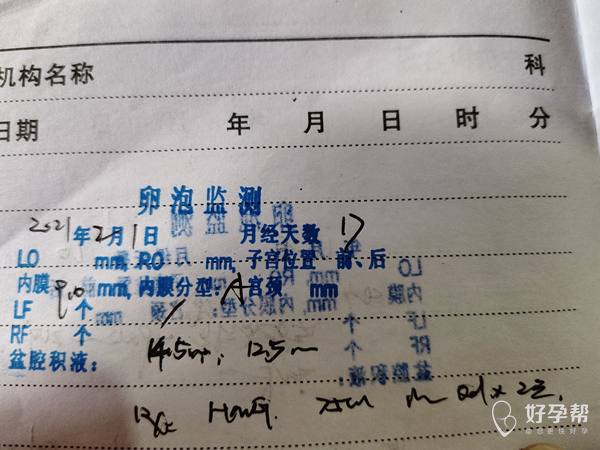 机构名称 科
日期 年 月 日 时 分
卵泡监测
2021年2月1日 月经天数 17
LO mm, RO mm, 子宫位置 前、后
内膜 9.0 mm, 内膜分型: A 宫颈 mm
LF 个
RF 个
盆腔积液: 14.5mm, 12.5m
HMG 75u im qd×2天.
好孕帮